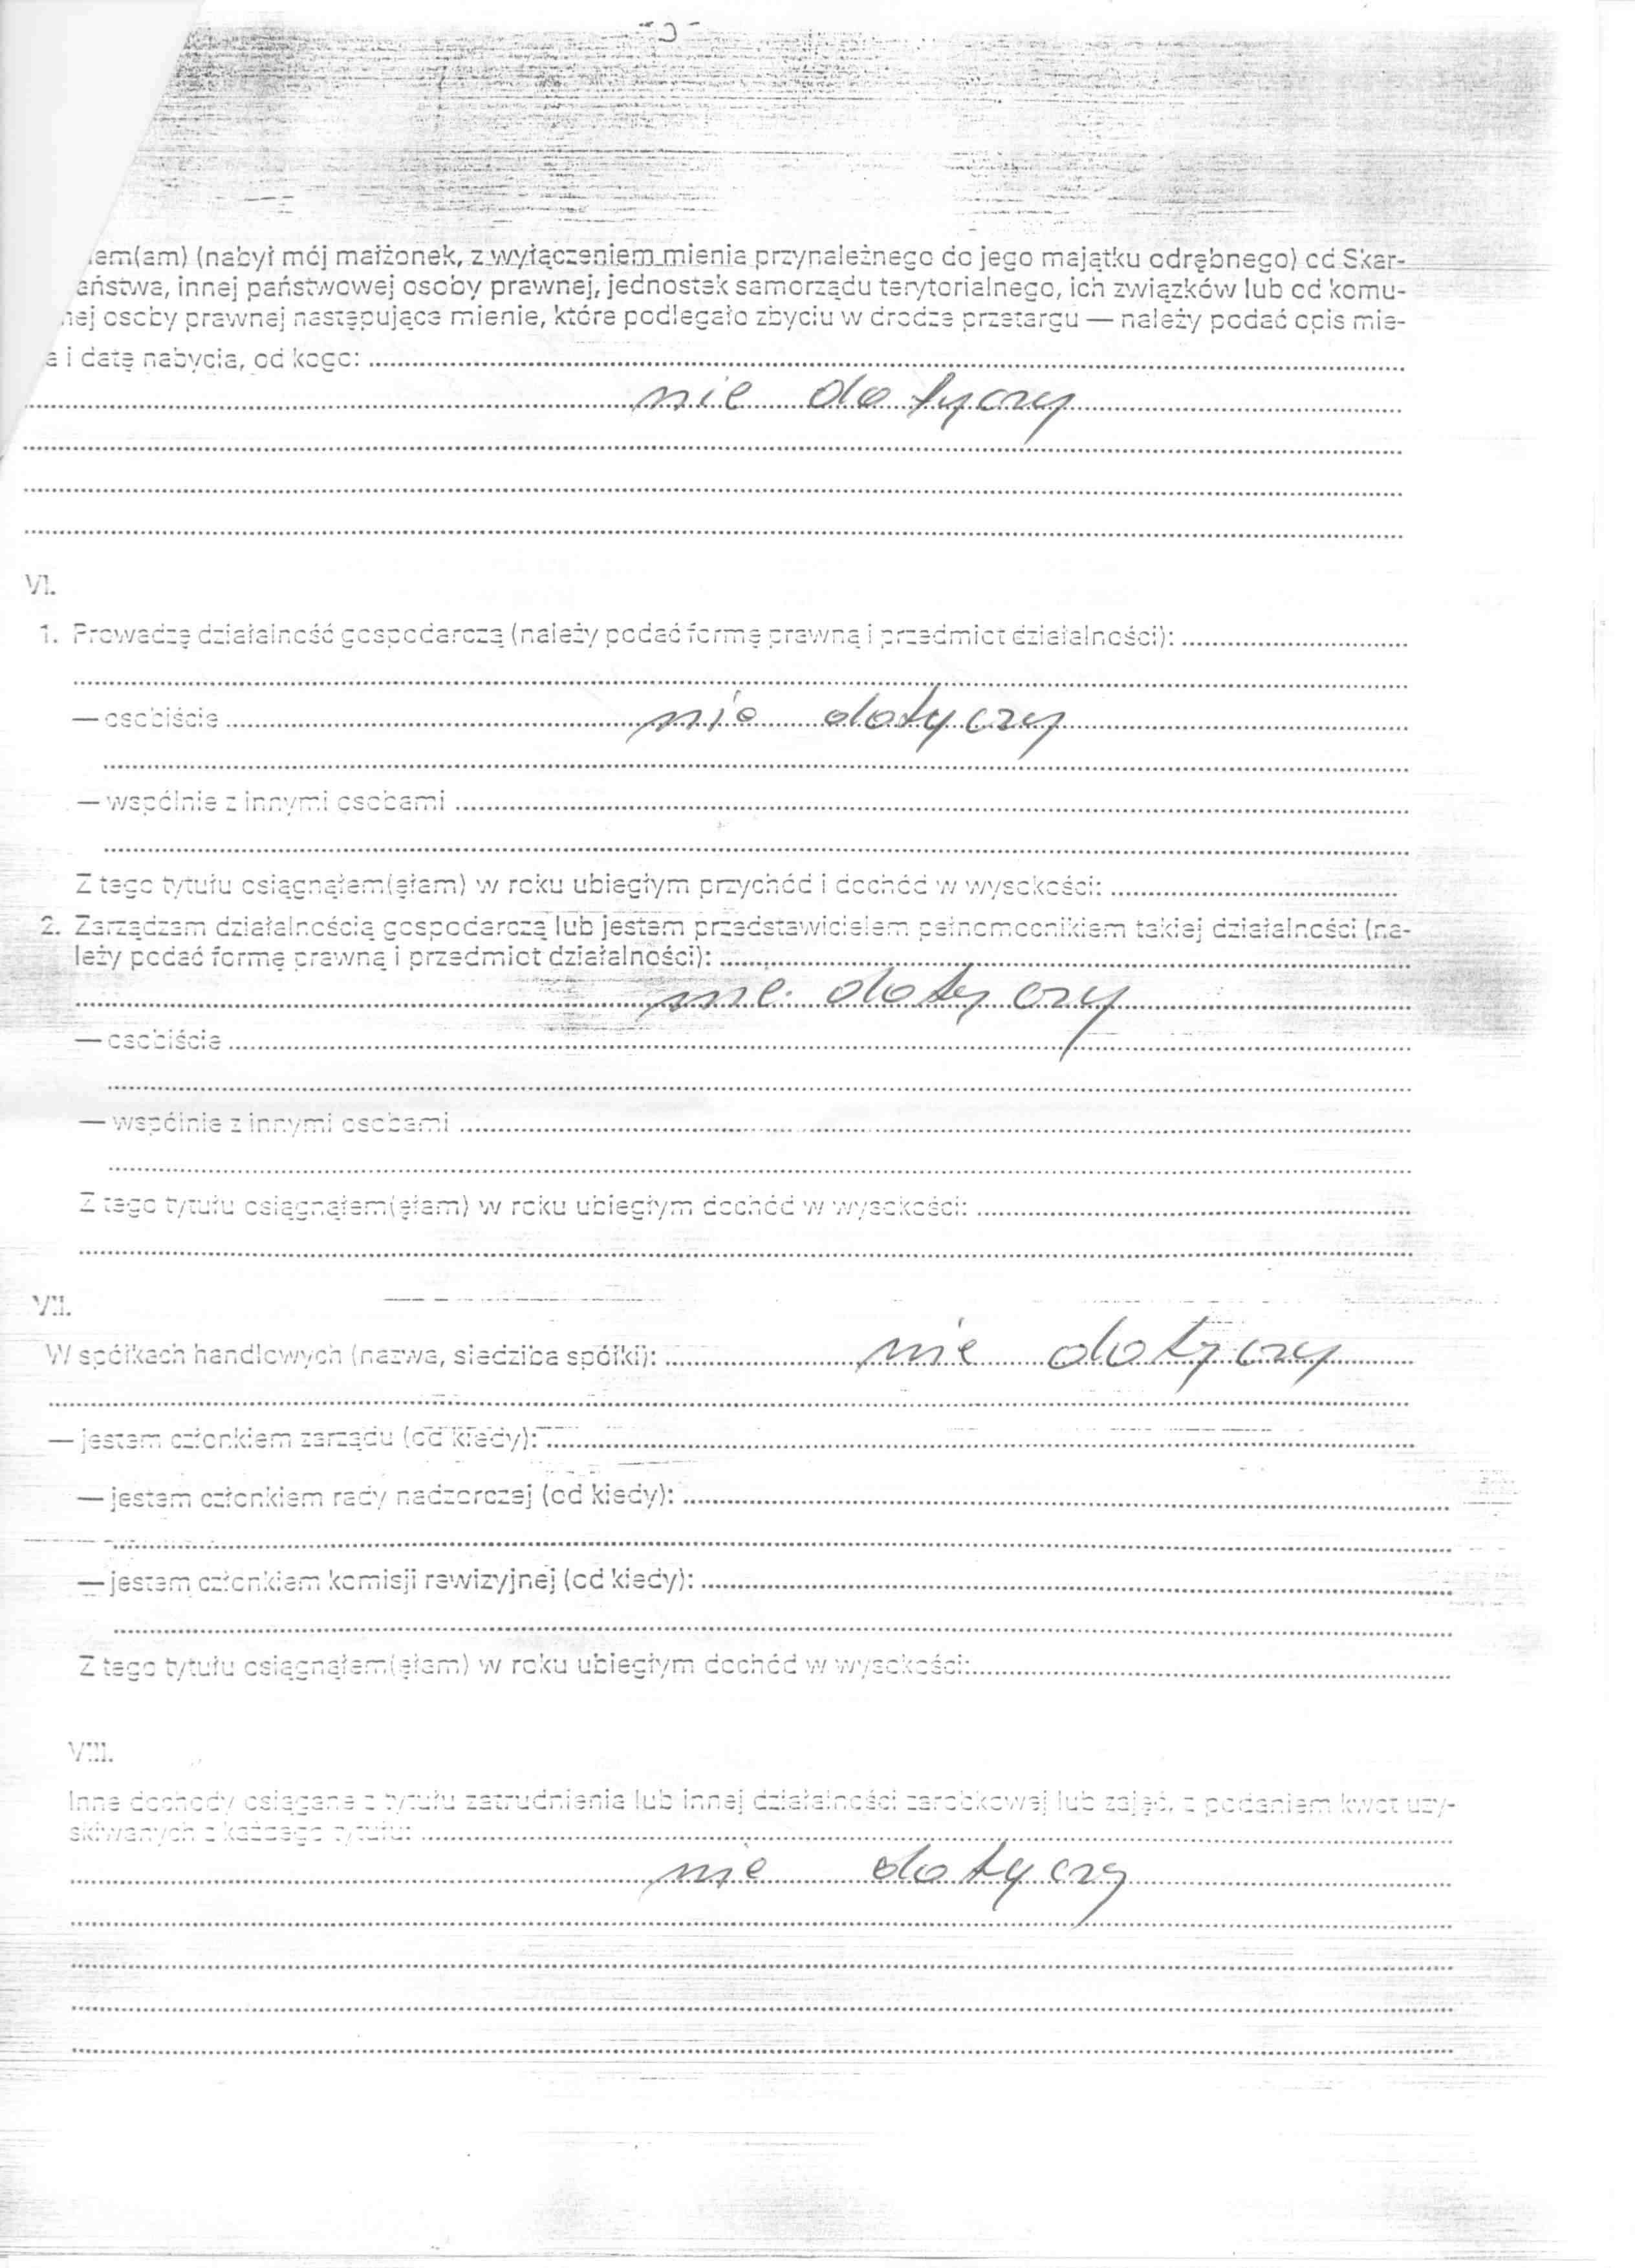 - 3 -
łem(am) (nabył mój małżonek, z wyłączeniem mienia przynależnego do jego majątku odrębnego) od Skar-
aństwa, innej państwowej osoby prawnej, jednostek samorządu terytorialnego, ich związków lub od komu-
nej osoby prawnej następujące mienie, które podlegało zbyciu w drodze przetargu — należy podać opis mie-
a i datę nabycia, od kogo:
nie dotyczy
VI.
1. Prowadzę działalność gospodarczą (należy podać formę prawną i przedmiot działalności):
— osobiście nie dotyczy
— wspólnie z innymi osobami
Z tego tytułu osiągnąłem(ęłam) w roku ubiegłym przychód i dochód w wysokości:
2. Zarządzam działalnością gospodarczą lub jestem przedstawicielem pełnomocnikiem takiej działalności (na-
leży podać formę prawną i przedmiot działalności):
nie dotyczy
— osobiście
— wspólnie z innymi osobami
Z tego tytułu osiągnąłem(ęłam) w roku ubiegłym dochód w wysokości:
VII.
W spółkach handlowych (nazwa, siedziba spółki): nie dotyczy
— jestem członkiem zarządu (od kiedy):
— jestem członkiem rady nadzorczej (od kiedy):
— jestem członkiem komisji rewizyjnej (od kiedy):
Z tego tytułu osiągnąłem(ęłam) w roku ubiegłym dochód w wysokości:
VIII.
Inne dochody osiągane z tytułu zatrudnienia lub innej działalności zarobkowej lub zajęć, z podaniem kwot uzy-
skiwanych z każdego tytułu:
nie dotyczy